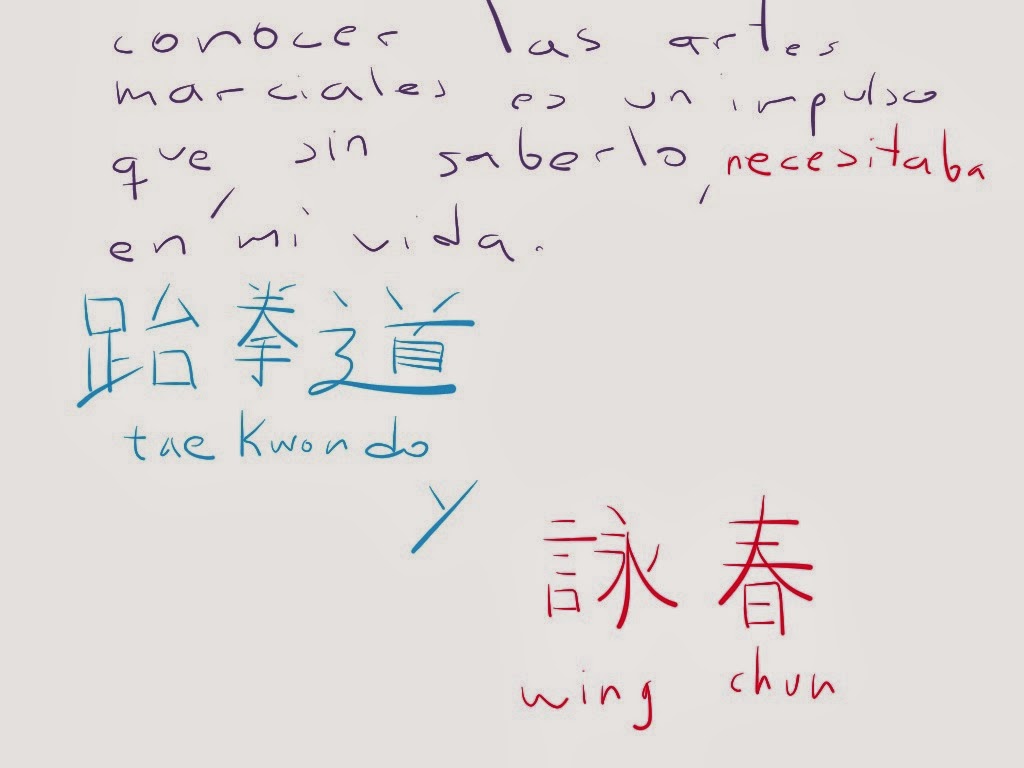 conocer las artes
marciales es un impulso
que, sin saberlo, necesitaba
en mi vida.
跆拳道
tae kwon do
y
詠春
wing chun